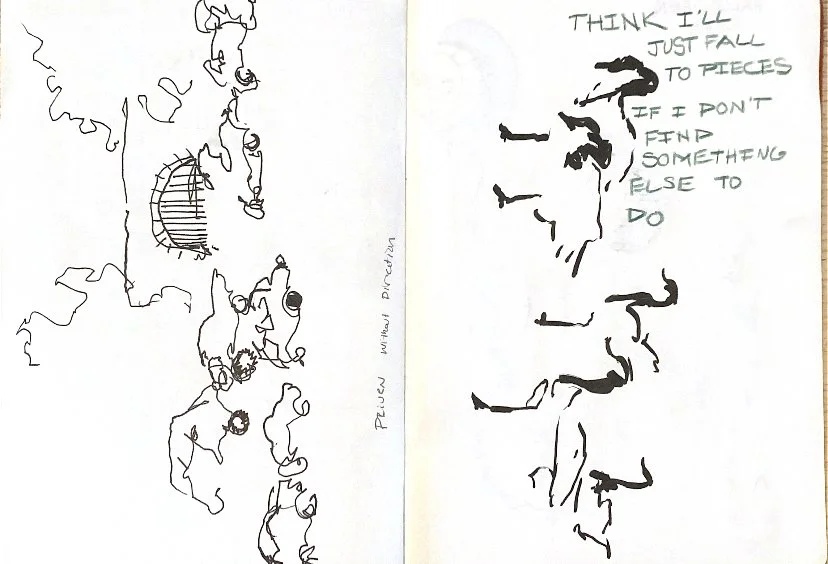 Driven Without Direction
THINK I'LL
JUST FALL
TO PIECES
IF I DON'T
FIND
SOMETHING
ELSE TO
DO